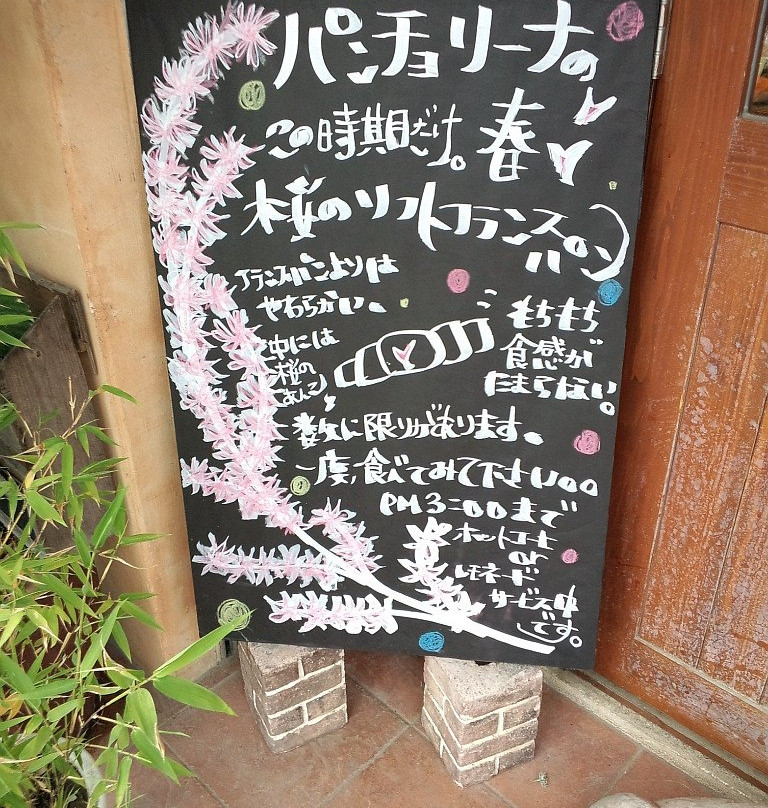 パンチョリーナの
この時期だけ。春
桜のソフトフランスパン
フランスパンよりは
やわらかい。
中には
桜の
あんこ
もちもち
食感が
たまらない。
数に限りがあります。
一度、食べてみて下さい。。
PM3:00まで
ホットコーヒー
or
レモネード
サービス中
です。